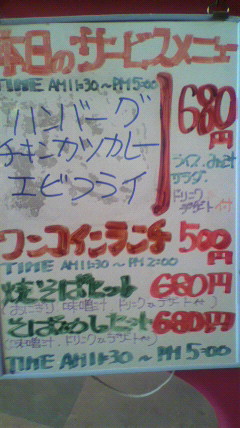 本日のサービスメニュー
TIME AM11:30～PM5:00
ハンバーグ
チキンカツカレー
エビフライ
680円
ライス、みそ汁
サラダ、
ドリンク
デザート付
ワンコインランチ 500円
TIME AM11:30～PM2:00
焼そばセット 680円
(おにぎり 味噌汁 ドリンク デザート付)
そばめしセット 680円
(味噌汁、ドリンク デザート付)
TIME AM11:30～PM5:00